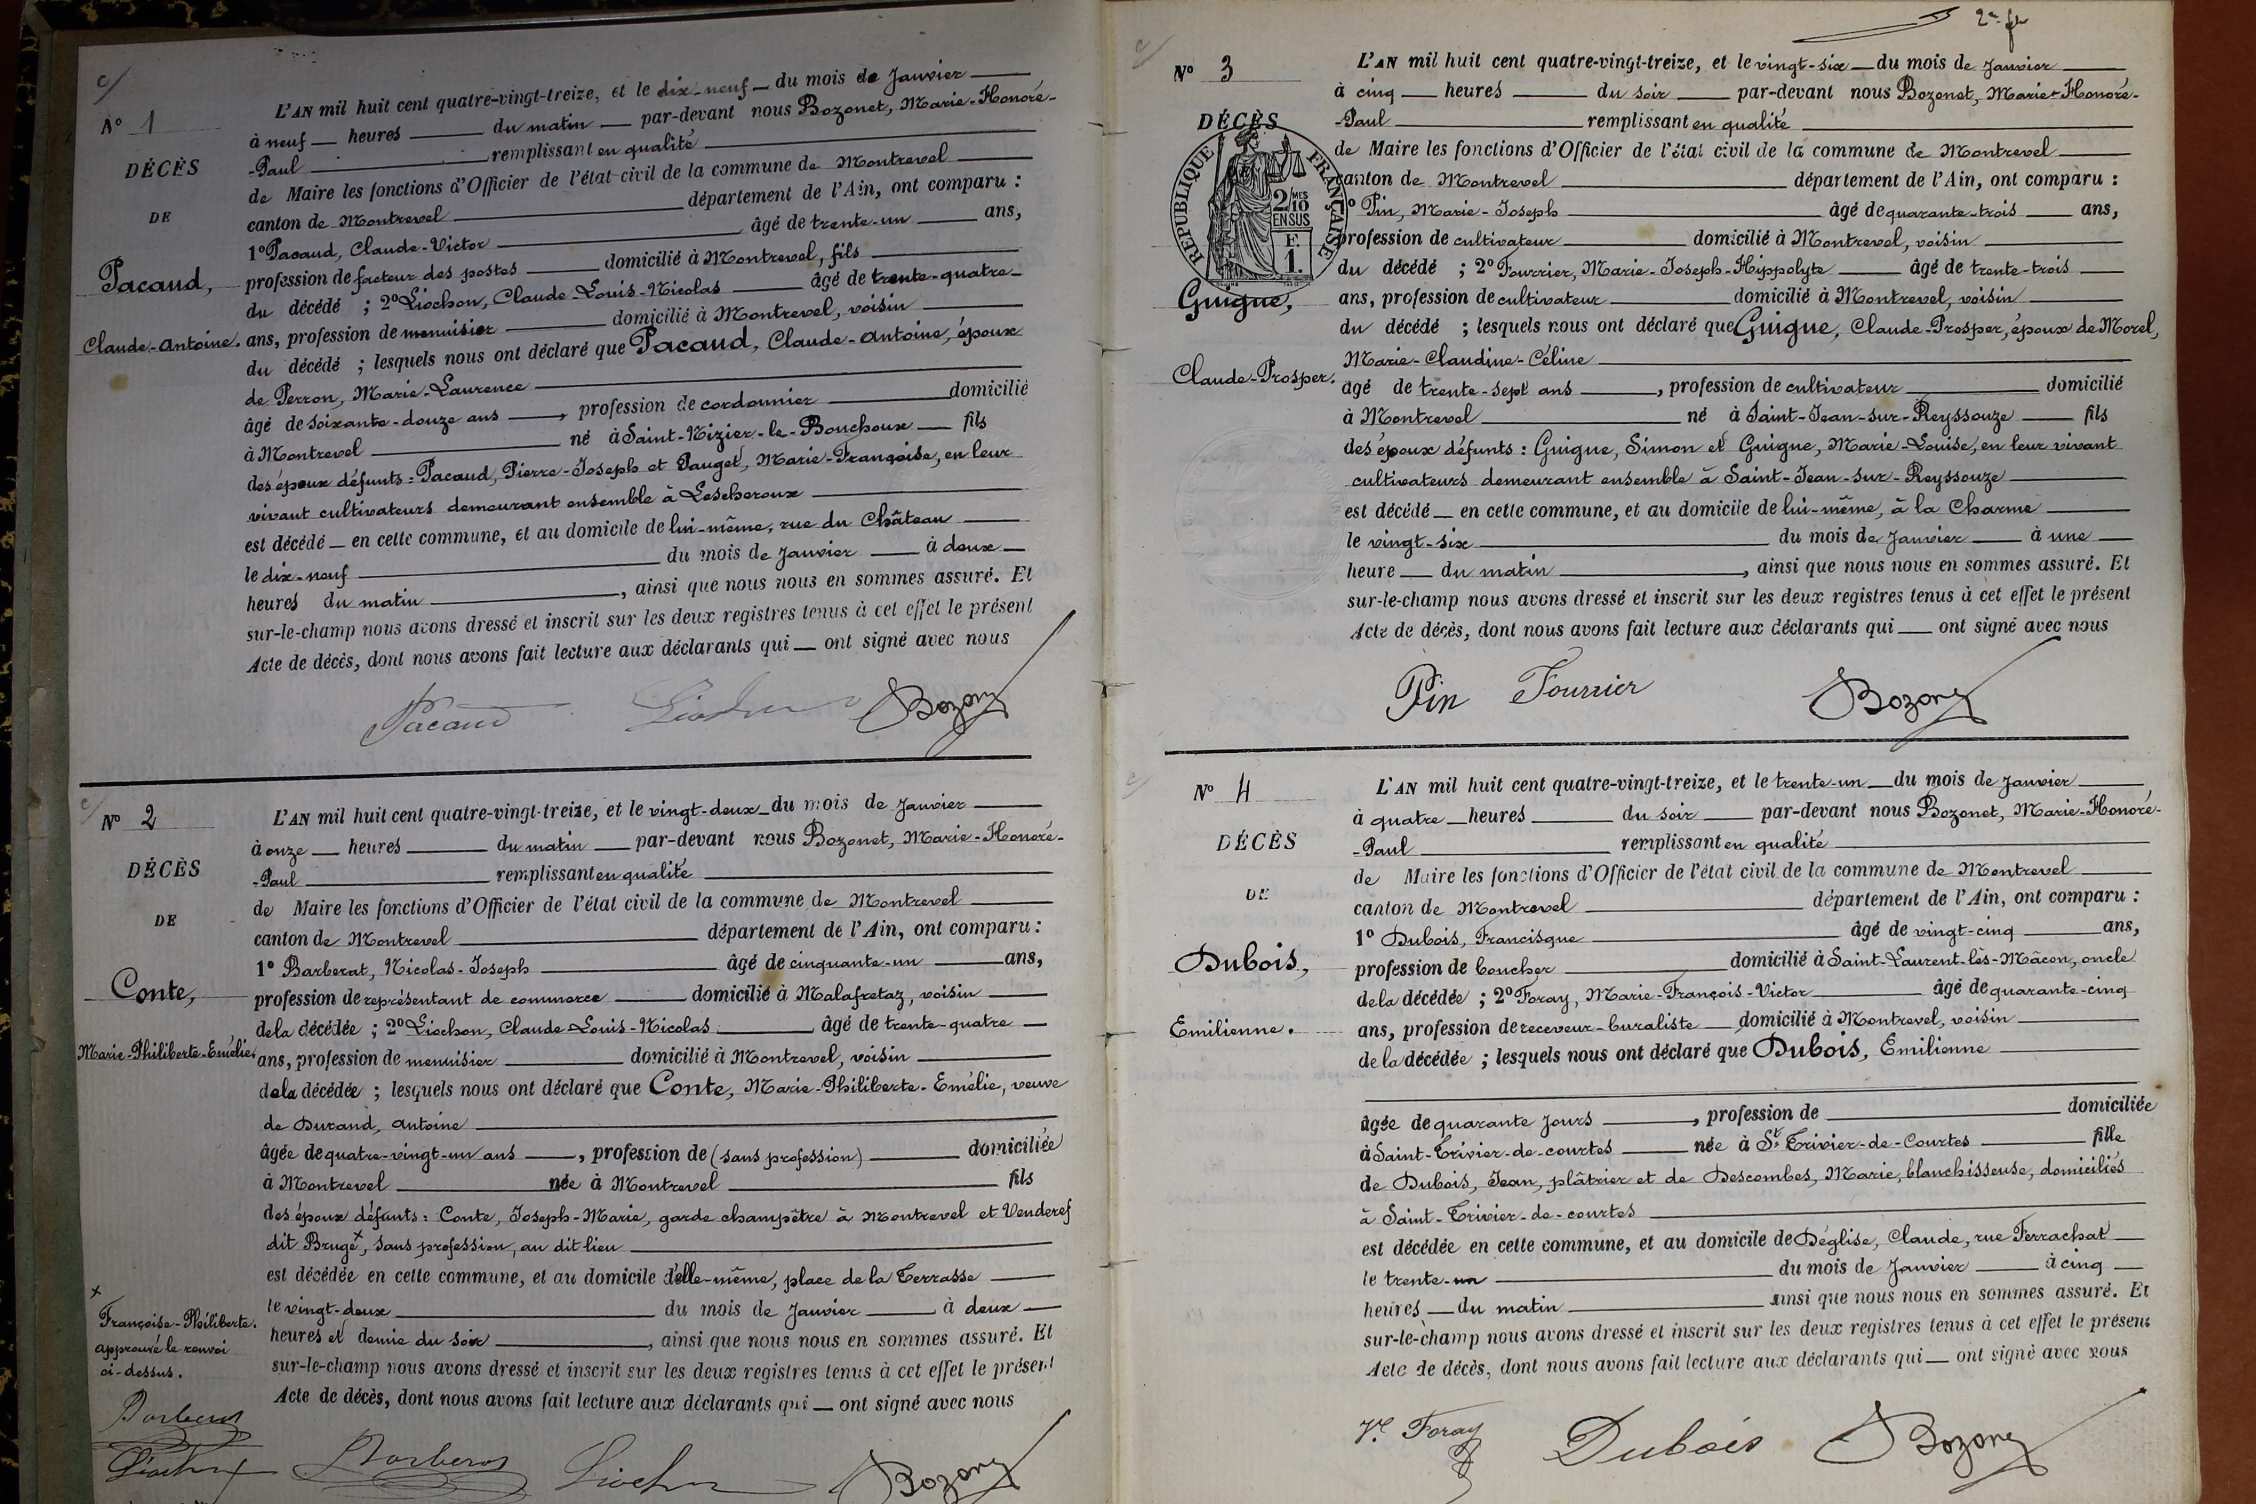 N° 1
DÉCÈS
DE
Pacaud,
Claude-Antoine.
L'AN mil huit cent quatre-vingt-treize, et le dix-neuf du mois de Janvier
à neuf heures du matin par-devant nous Bozonet, Marie-Honoré-
-Paul remplissant en qualité
de Maire les fonctions d'Officier de l'état civil de la commune de Montrevel
canton de Montrevel département de l'Ain, ont comparu :
1° Pacaud, Claude-Victor âgé de trente-un ans,
profession de facteur des postes domicilié à Montrevel, fils
du décédé ; 2° Liochon, Claude-Louis-Nicolas âgé de trente-quatre
ans, profession de menuisier domicilié à Montrevel, voisin
du décédé ; lesquels nous ont déclaré que Pacaud, Claude-Antoine, époux
de Perron, Marie-Laurence
âgé de soixante-douze ans, profession de cordonnier domicilié
à Montrevel né à Saint-Nizier-le-Bouchoux fils
des époux défunts : Pacaud, Pierre-Joseph et Pauget, Marie-Françoise, en leur
vivant cultivateurs demeurant ensemble à Lescheroux
est décédé en cette commune, et au domicile de lui-même, rue du Château
le dix-neuf du mois de Janvier à deux
heures du matin, ainsi que nous nous en sommes assuré. Et
sur-le-champ nous avons dressé et inscrit sur les deux registres tenus à cet effet le présent
Acte de décès, dont nous avons fait lecture aux déclarants qui ont signé avec nous
Pacaud Liochon Bozonet
N° 2
DÉCÈS
DE
Conte,
Marie-Philiberte-Emélie.
L'AN mil huit cent quatre-vingt-treize, et le vingt-deux du mois de Janvier
à onze heures du matin par-devant nous Bozonet, Marie-Honoré-
-Paul remplissant en qualité
de Maire les fonctions d'Officier de l'état civil de la commune de Montrevel
canton de Montrevel département de l'Ain, ont comparu :
1° Barberat, Nicolas-Joseph âgé de cinquante-un ans,
profession de représentant de commerce domicilié à Malafretaz, voisin
de la décédée ; 2° Liochon, Claude-Louis-Nicolas âgé de trente-quatre
ans, profession de menuisier domicilié à Montrevel, voisin
de la décédée ; lesquels nous ont déclaré que Conte, Marie-Philiberte-Emélie, veuve
de Durand, Antoine
âgée de quatre-vingt-un ans, profession de (sans profession) domiciliée
à Montrevel née à Montrevel fils
des époux défunts : Conte, Joseph-Marie, garde champêtre à Montrevel et Venderef
dit Bruge x, sans profession, au dit lieu
est décédée en cette commune, et au domicile d'elle-même, place de la Terrasse
le vingt-deux du mois de Janvier à deux
heures et demie du soir, ainsi que nous nous en sommes assuré. Et
sur-le-champ nous avons dressé et inscrit sur les deux registres tenus à cet effet le présent
Acte de décès, dont nous avons fait lecture aux déclarants qui ont signé avec nous
x
Françoise-Philiberte.
approuvé le renvoi
ci-dessus.
Barberat
Liochon
Barberat Liochon Bozonet
2e ft
N° 3
DÉCÈS
RÉPUBLIQUE FRANÇAISE
2/10 MES
EN SUS
F.
1.
Guigue,
Claude-Prosper.
L'AN mil huit cent quatre-vingt-treize, et le vingt-six du mois de Janvier
à cinq heures du soir par-devant nous Bozonet, Marie-Honoré-
-Paul remplissant en qualité
de Maire les fonctions d'Officier de l'état civil de la commune de Montrevel
canton de Montrevel département de l'Ain, ont comparu :
1° Pin, Marie-Joseph âgé de quarante-trois ans,
profession de cultivateur domicilié à Montrevel, voisin
du décédé ; 2° Fourrier, Marie-Joseph-Hippolyte âgé de trente-trois
ans, profession de cultivateur domicilié à Montrevel, voisin
du décédé ; lesquels nous ont déclaré que Guigue, Claude-Prosper, époux de Morel,
Marie-Claudine-Céline
âgé de trente-sept ans, profession de cultivateur domicilié
à Montrevel né à Saint-Jean-sur-Reyssouze fils
des époux défunts : Guigue, Simon et Guigue, Marie-Louise, en leur vivant
cultivateurs demeurant ensemble à Saint-Jean-sur-Reyssouze
est décédé en cette commune, et au domicile de lui-même, à la Charme
le vingt-six du mois de Janvier à une
heure du matin, ainsi que nous nous en sommes assuré. Et
sur-le-champ nous avons dressé et inscrit sur les deux registres tenus à cet effet le présent
Acte de décès, dont nous avons fait lecture aux déclarants qui ont signé avec nous
Pin Fourrier Bozonet
N° 4
DÉCÈS
DE
Dubois,
Emilienne.
L'AN mil huit cent quatre-vingt-treize, et le trente-un du mois de Janvier
à quatre heures du soir par-devant nous Bozonet, Marie-Honoré-
-Paul remplissant en qualité
de Maire les fonctions d'Officier de l'état civil de la commune de Montrevel
canton de Montrevel département de l'Ain, ont comparu :
1° Dubois, Francisque âgé de vingt-cinq ans,
profession de boucher domicilié à Saint-Laurent-lès-Mâcon, oncle
de la décédée ; 2° Foray, Marie-François-Victor âgé de quarante-cinq
ans, profession de receveur-buraliste domicilié à Montrevel, voisin
de la décédée ; lesquels nous ont déclaré que Dubois, Emilienne
âgée de quarante jours, profession de domiciliée
à Saint-Trivier-de-courtes née à St. Trivier-de-Courtes fille
de Dubois, Jean, plâtrier et de Descombes, Marie, blanchisseuse, domiciliés
à Saint-Trivier-de-courtes
est décédée en cette commune, et au domicile de Déglise, Claude, rue Ferrachat
le trente-un du mois de Janvier à cinq
heures du matin ainsi que nous nous en sommes assuré. Et
sur-le-champ nous avons dressé et inscrit sur les deux registres tenus à cet effet le présent
Acte de décès, dont nous avons fait lecture aux déclarants qui ont signé avec nous
Vr Foray Dubois Bozonet